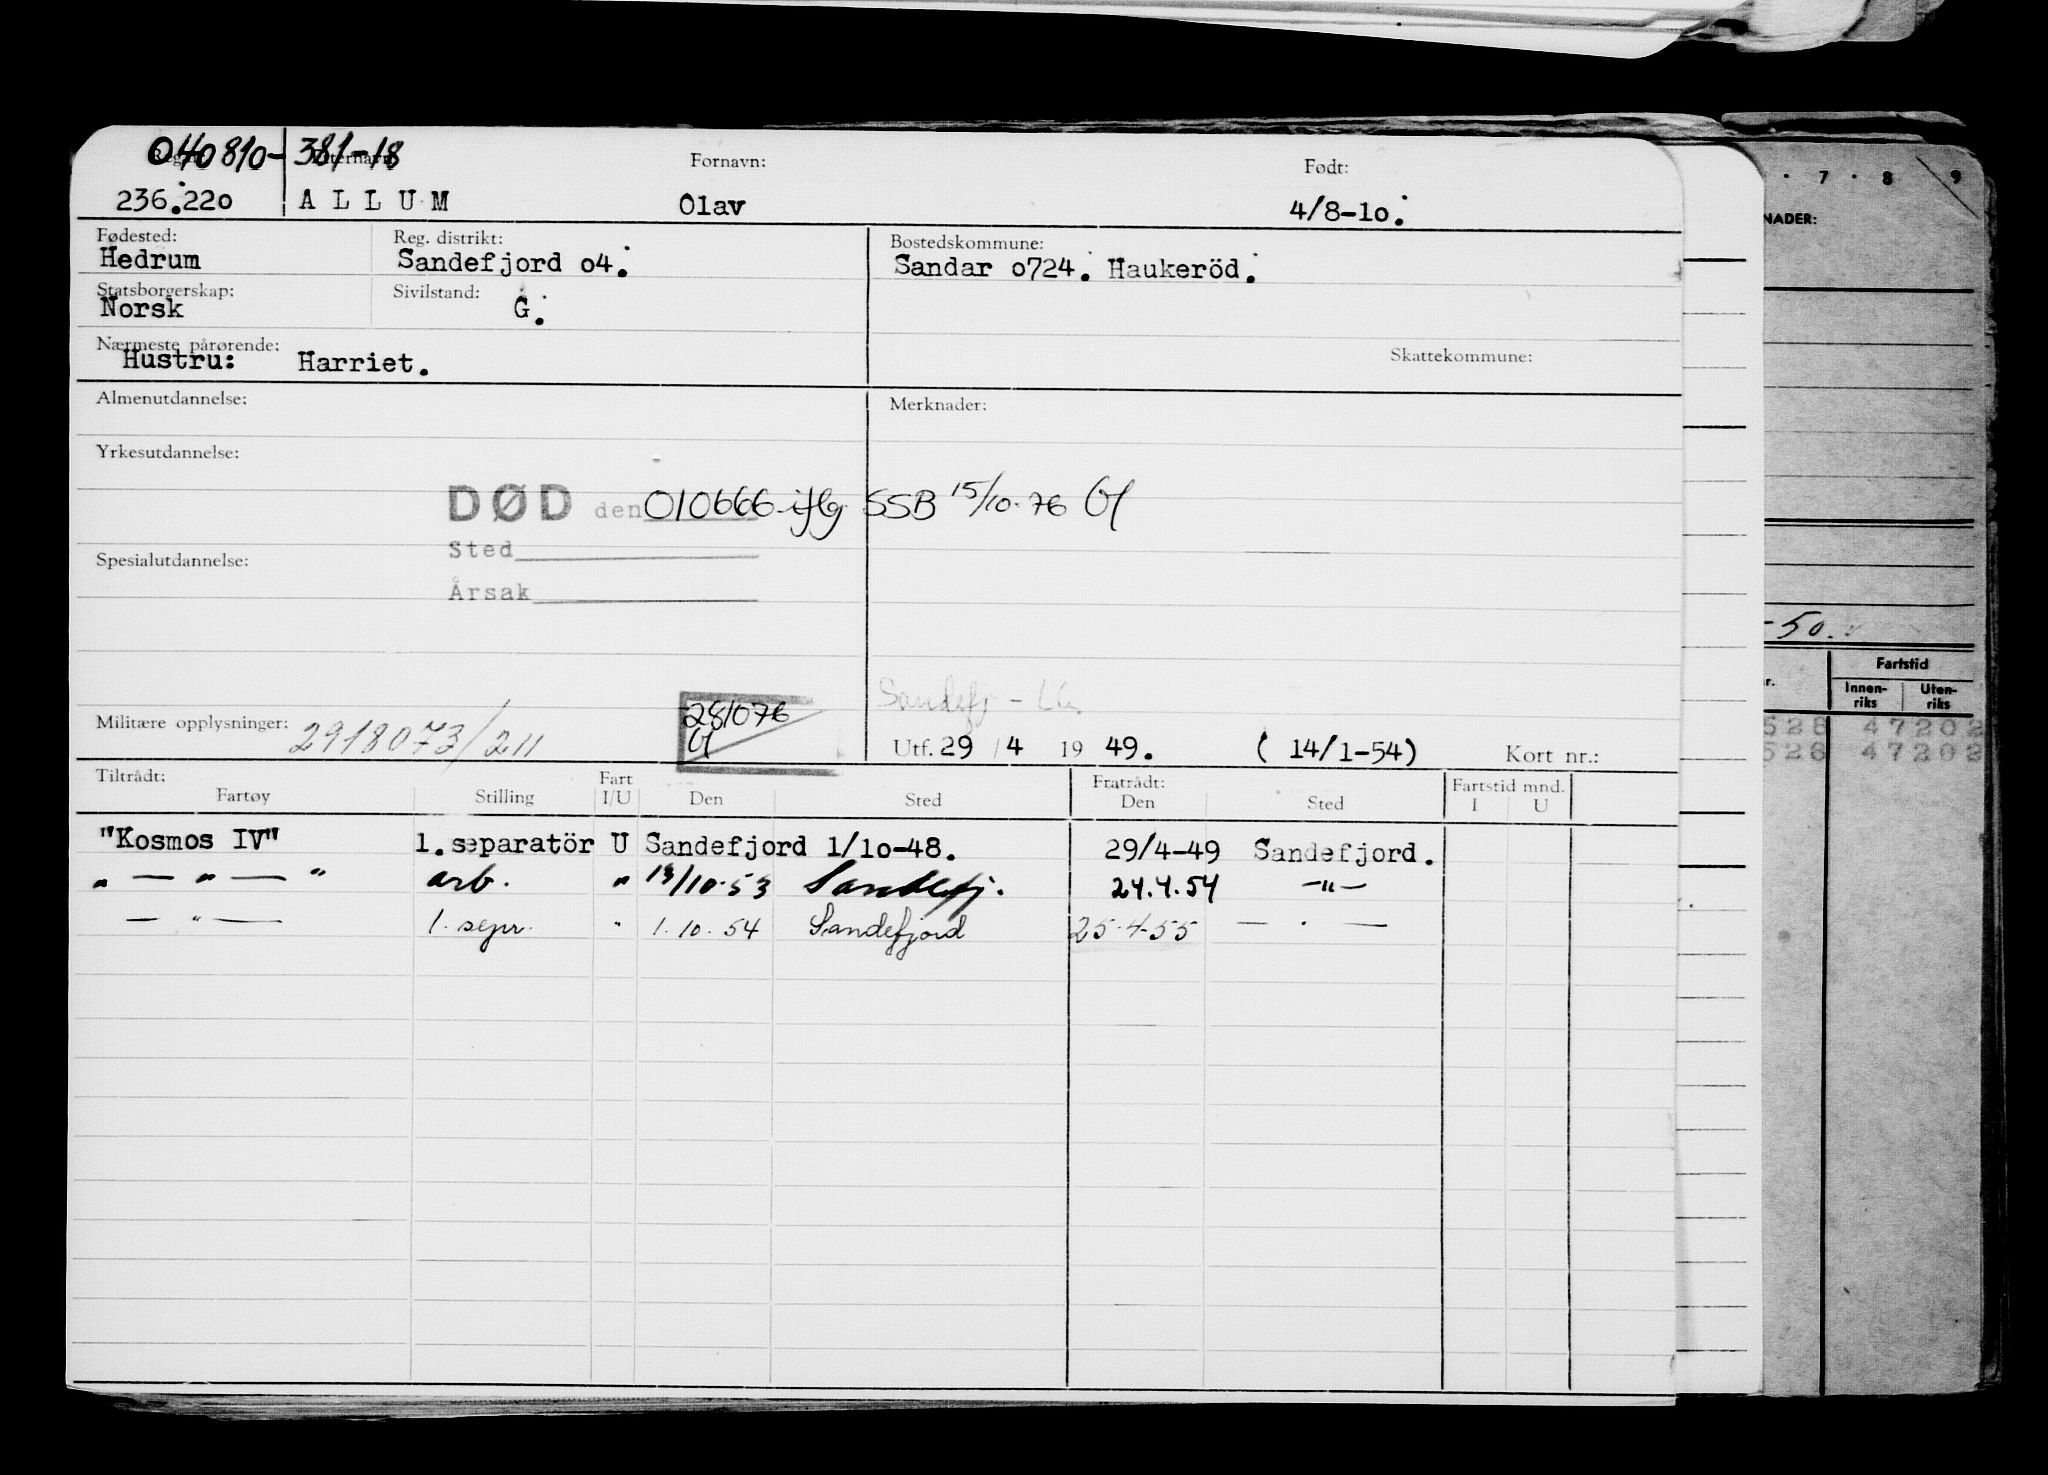 040810-381-18
Etternavn: Fornavn: Født:
236.220 ALLUM Olav 4/8-10.
Fødested: Reg. distrikt: Bostedskommune:
Hedrum Sandefjord 04. Sandar 0724. Haukeröd.
Statsborgerskap: Sivilstand:
Norsk G.
Nærmeste pårørende: Skattekommune:
Hustru: Harriet.
Almenutdannelse: Merknader:
Yrkesutdannelse:
DØD den 010666 iflg SSB 15/10-76
Sted
Spesialutdannelse:
Årsak
Sandefj -
281076
Militære opplysninger: 2918073/211
Utf. 29/4 1949. (14/1-54) Kort nr.:
Tiltrådt: Fratrådt: Fartstid mnd.
Fartøy Stilling Fart I/U Den Sted Den Sted I U
"Kosmos IV" 1. separatör U Sandefjord 1/10-48. 29/4-49 Sandefjord.
" — " — " arb. " 13/10-53 Sandefj. 24.4.54 —"—
— " — 1. sepr. " 1.10.54 Sandefjord 25-4-55 — " —
7 · 8 9
NADER:
-50.
Fartstid
r. Innen-riks Uten-riks
528 47202
528 47202